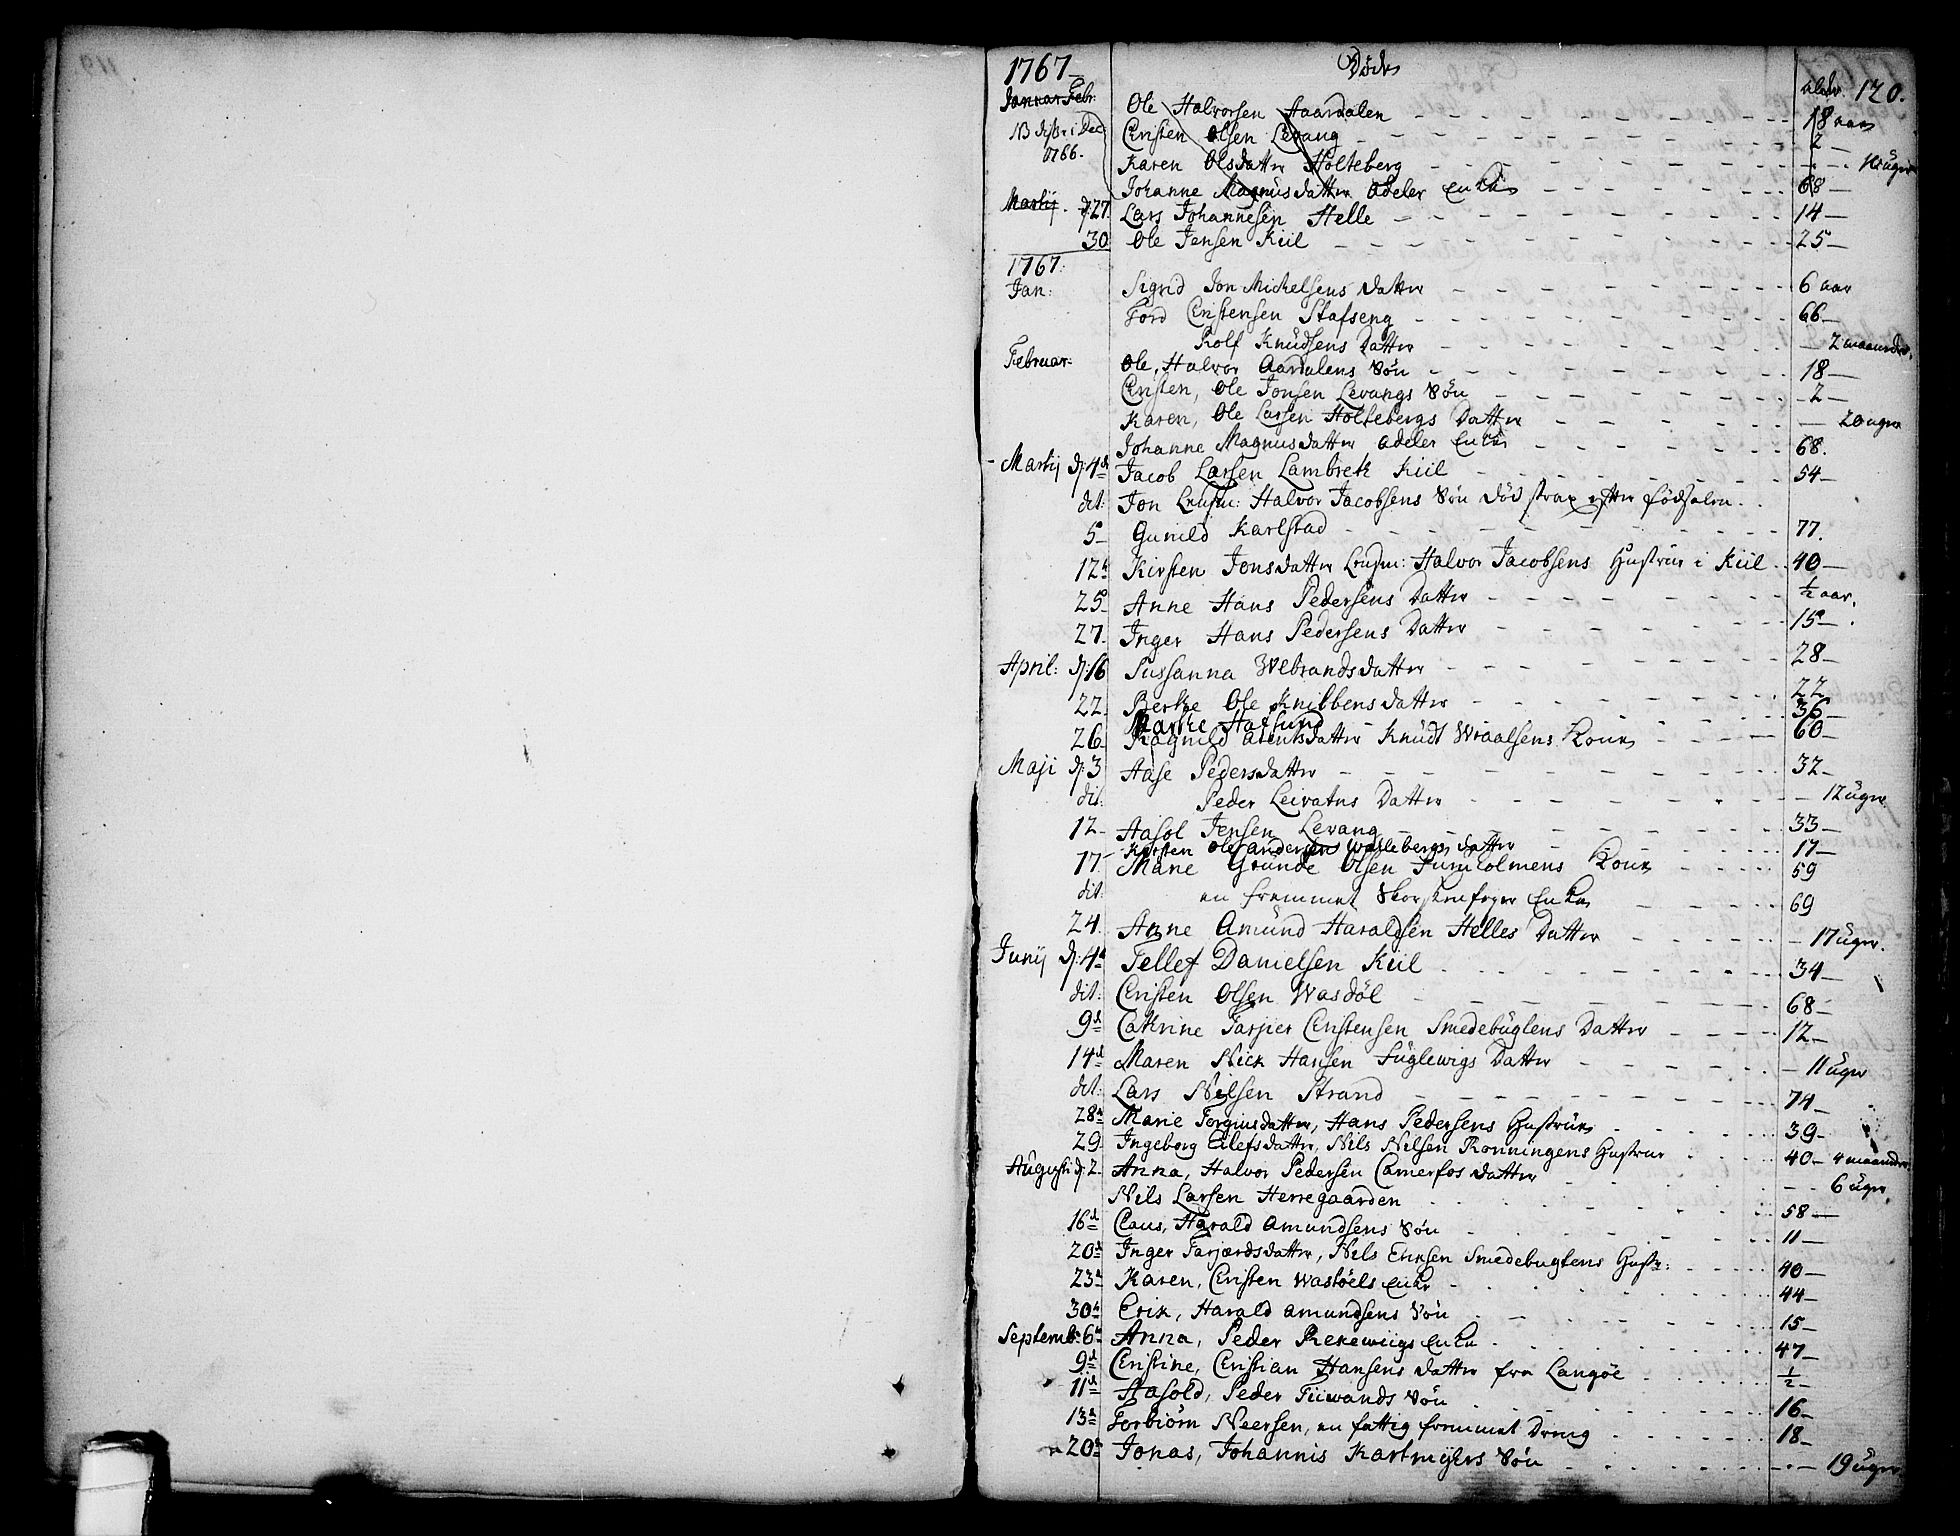 119
1767 Døde
alder. 120.
Januar Febr: Ole Halvorsen Aardalen 18 aar
NB disse i Dec: Christen Olsen Levang 2
1766. Karen Olsdatter Holteberg ugr
Johanne Magnusdatter Adeler Enke 68
Martij d: 27 Lars Johannesen Helle 14
30 Ole Jensen Kiil 25
1767:
Jan: Sigrid Jon Michelsens datter 6 aar
Tord Christensen Stafseng 66
Rolf Knudsens Datter 2 maaneder
Februar: Ole, Halvor Aardalens Søn 18
Christen, Ole Jonsen Levangs Søn 2
Karen, Ole Larsen Holtebergs Datter 20 ugr
Johanne Magnusdatter Adeler Enke 68.
Martij d: 4de Jacob Larsen Lambrek Kiil 54
dit: Jon Halvor Jacobsens Søn død strax efter fødselen
5 Gunild Karlstad 77.
12te Kirsten Jonsdatter Halvor Jacobsens Hustrue i Kiil 40
25 Anne Hans Pedersens Datter ½ aar.
27. Inger Hans Pedersens Datter 15
April: d: 16 Sussanna Webrandsdatter 28
22 Berthe Ole Knibbens datter 22
Marthe Hafsund 36
26 Ragnild Arentsdatter Knudt Wraalsens Kone 60
Maji d: 3 Aase Pedersdatter 32
dit: Peder Leivatns Datter 12 ugr
12 Aasol Jensen Levang 33
Kirsten Ole Andersen Wallebergs datter 17
17 Marie Grunde Olsen Furuholmens Kone 59
dit en fremmet Skorstenfeger Enke 69
24. Anne Amund Haraldsen Helles Datter 17 ugr.
Junij d: 4de Tellef Danielsen Kiil 34
dit: Christen Olsen Wasdøl 68
9de Cathrine Tarjier Christensen Smedebugtens Datter 12
14de Maren Nick Hansen Fuglewigs Datter 11 ugr
dit: Lars Nilsen Strand 74
28de Marie Torgiusdatter, Hans Pedersens Hustrue 39
29 Ingeborg Eilefsdatter, Nils Nilsen Rønningens Hustrue 40
Augusti d: 2 Anna, Halvor Pedersen Camerfos datter 4 maaneder
6 ugr
Nils Larsen Herregaarden 58
16de Claus, Harald Amundsens Søn 11
20de Inger Tarjærdsdatter, Nils Erichsen Smedebugtens Hustr: 40
23de Karen, Christen Wasdøels Enke 44
30de Erik, Harald Amundsens Søn 15
Septemb: 6te Anna, Peder Rekewiigs Enke 47
9de Christine, Christian Hansens datter fra Langøe ½
11de Aasold, Peder Tiiwands Søn 16
13de Torbiørn Neersen, en fattig fremmet Dreng 18
20de Jonas, Johannis Kartmijers Søn 19 ugr